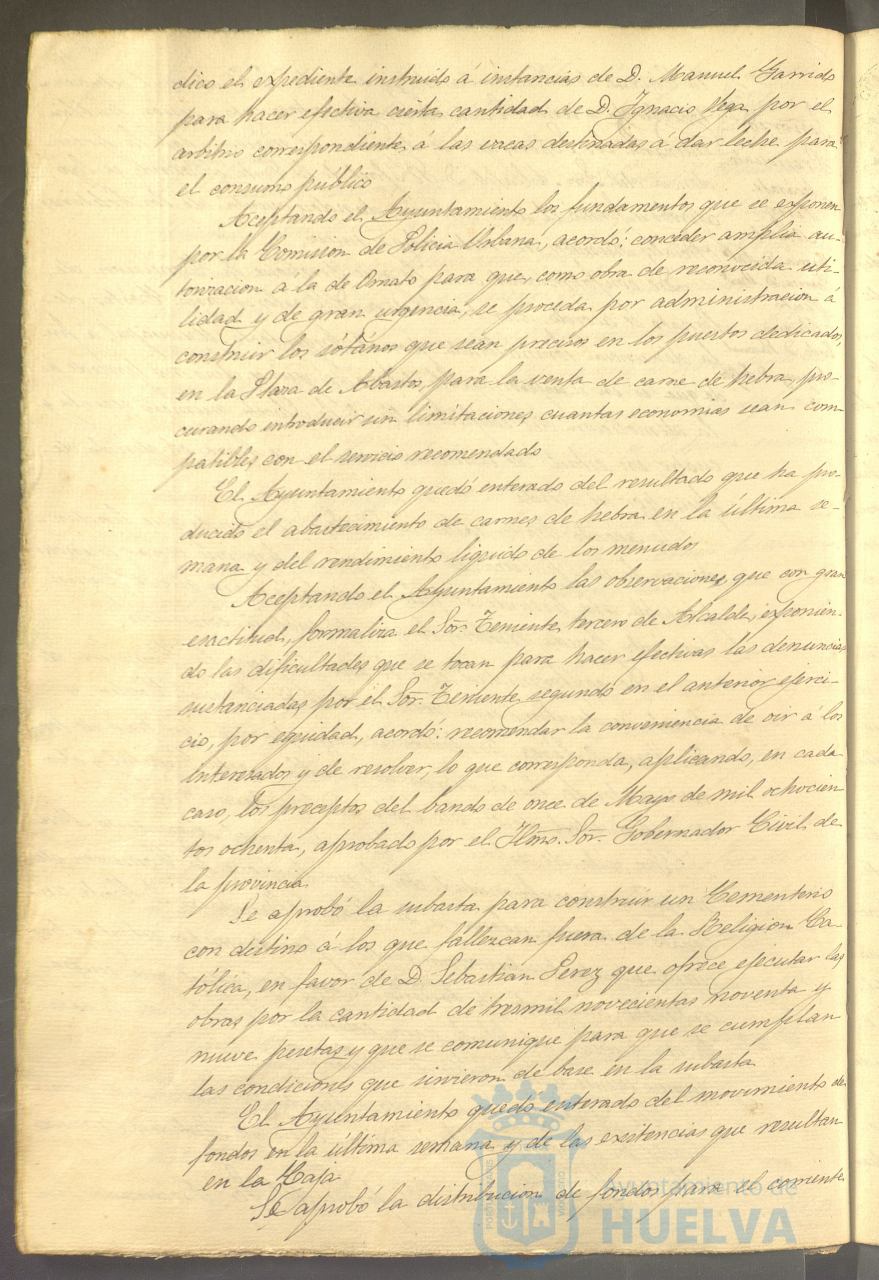 dico el expediente instruido á instancias de D. Manuel Garrido
para hacer efectiva cierta cantidad de D. Ygnacio Vega por el
arbitrio correspondiente á las vacas destinadas á dar leche para
el consumo público
Aceptando el Ayuntamiento los fundamentos que se exponen
por la Comision de Policia Urbana, acordó: conceder amplia au-
torizacion á la de Ornato para que, como obra de reconocida uti-
lidad y de gran urgencia, se proceda por administracion á
construir los sótanos que sean precisos en los puestos dedicados,
en la Plaza de Abastos, para la venta de carne de hebra, pro-
curando introducir sin limitaciones cuantas economias sean com-
patibles con el servicio recomendado
El Ayuntamiento quedó enterado del resultado que ha pro-
ducido el abastecimiento de carnes de hebra en la última se-
mana y del rendimiento liquido de los menudos
Aceptando el Ayuntamiento las observaciones que con gran
exactitud, formaliza el Sor. Teniente tercero de Alcalde, exponien-
do las dificultades que se tocan para hacer efectivas las denuncias
sustanciadas por el Sor. Teniente segundo en el anterior ejerci-
cio, por equidad, acordó: recomendar la conveniencia de oir á los
interesados y de resolver, lo que corresponda, aplicando, en cada
caso, los preceptos del bando de once de Mayo de mil ochocien
tos ochenta, aprobado por el Ilmo. Sor. Gobernador Civil de
la provincia.
Se aprobó la subasta para construir un Cementerio
con destino á los que fallezcan fuera de la Religion Ca-
tólica, en favor de D. Sebastian Perez que ofrece ejecutar las
obras por la cantidad de tresmil novecientas noventa y
nueve pesetas y que se comunique para que se cumplan
las condiciones que sirvieron de base en la subasta
El Ayuntamiento quedo enterado del movimiento de
fondos en la última semana y de las existencias que resultan
en la Caja
Se aprobó la distribucion de fondos para el corriente
Ayuntamiento de
HUELVA